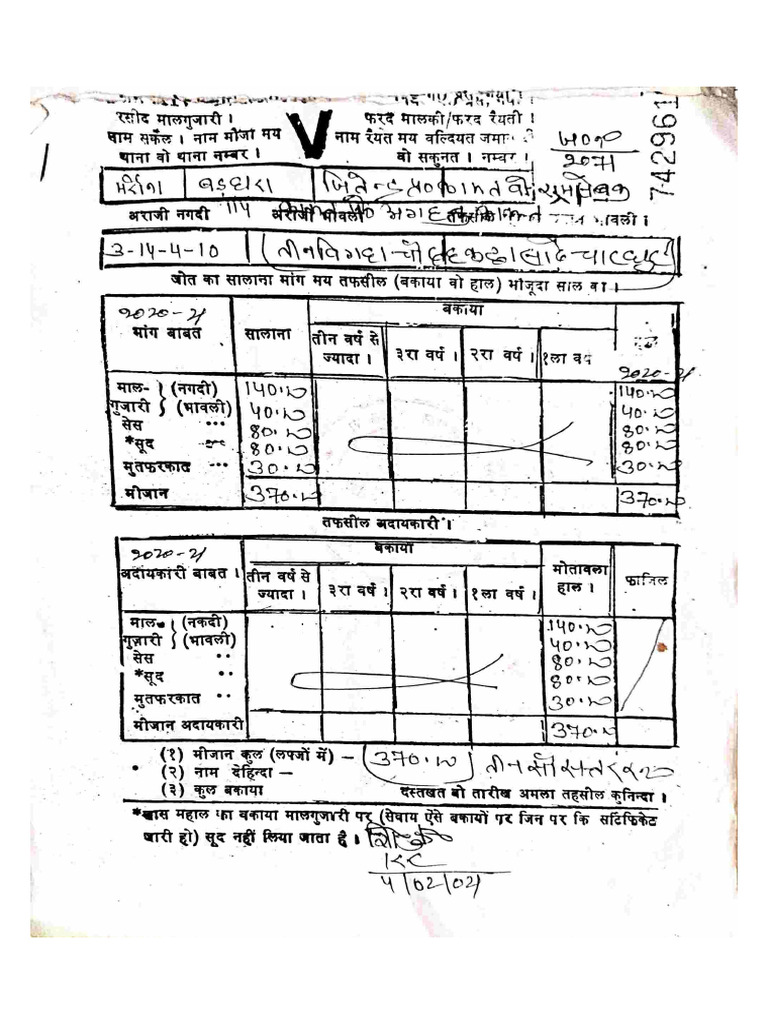 रसीद मालगुजारी । फरद मालकी/फरद रैयती ।
खाम सर्कल । नाम मौजा मय V नाम रैयत मय वल्दियत जमा
थाना वो थाना नम्बर । वो सकुनत । नम्बर ।
742961
बड़हारा जितेन्द्र
अराजी नगदी अराजी भावली तफसील भावली ।
3-14-4-10 (तीन विगहा चौदह कट्ठा साढे चार धुर)
जोत का सालाना मांग मय तफसील (बकाया वो हाल) मौजूदा साल का ।
2020-21 बकाया
मांग बाबत सालाना तीन वर्ष से ज्यादा । ३रा वर्ष । २रा वर्ष । १ला वर्ष
2020-21
माल- (नगदी) 140.00 140.00
गुजारी (भावली) 40.00 40.00
सेस ... 80.00 80.00
*सूद 80.00 80.00
मुतफरकात ... 30.00 30.00
मीजान 370.00 370.00
तफसील अदायकारी ।
2020-21 बकाया
अदायकारी बाबत । तीन वर्ष से ज्यादा । ३रा वर्ष । २रा वर्ष । १ला वर्ष । मोतावला हाल । फाजिल
माल- (नकदी) 140.00
गुजारी (भावली) 40.00
सेस .. 80.00
*सूद .. 80.00
मुतफरकात .. 30.00
मीजान अदायकारी 370.00
(१) मीजान कुल (लफ्जों में) – 370.00 तीन सौ सत्तर
(२) नाम देहिन्दा –
(३) कुल बकाया दस्तखत वो तारीख अमला तहसील कुनिन्दा ।
*खास महाल का बकाया मालगुजारी पर (सेवाय ऐसे बकायों पर जिन पर कि सर्टिफिकेट
जारी हो) सूद नहीं लिया जाता है ।